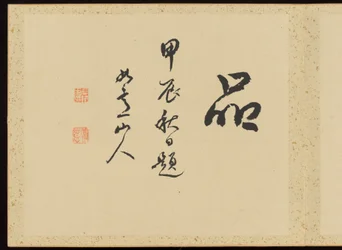 品
甲辰秋日題
如意山人